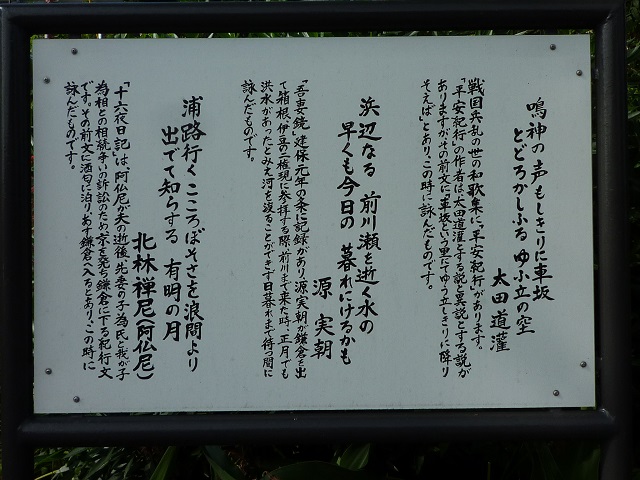 鳴神の声もしきりに車坂
とどろかしふる ゆふ立の空
太田道灌
戦国兵乱の世の和歌集に「平安紀行」があります。
「平安紀行」の作者は、太田道灌とする説と異説とする説が
ありますがその前文に「車坂という里にてゆう立しきりに降り
そえば」とあり、この時に詠んだものです。
浜辺なる 前川瀬を逝く水の
早くも今日の 暮れにけるかも
源 実朝
「吾妻鏡」建保元年の条に記録があり、源実朝が鎌倉を出
て箱根、伊豆の二権現に参拝する際、前川まで来た時、正月でも
洪水があったとみえ河を渡ることができず日暮れまで待つ間に
詠んだものです。
浦路行くこころぼそさを浪間より
出でて知らする 有明の月
北林禅尼(阿仏尼)
「十六夜日記」は、阿仏尼が夫の逝後、先妻の子為氏と我が子
為相との相続争いの訴訟のため、京を立ち鎌倉に下る紀行文
です。その前文に酒匂に泊り、あす鎌倉へ入るとあり、この時に
詠んだものです。